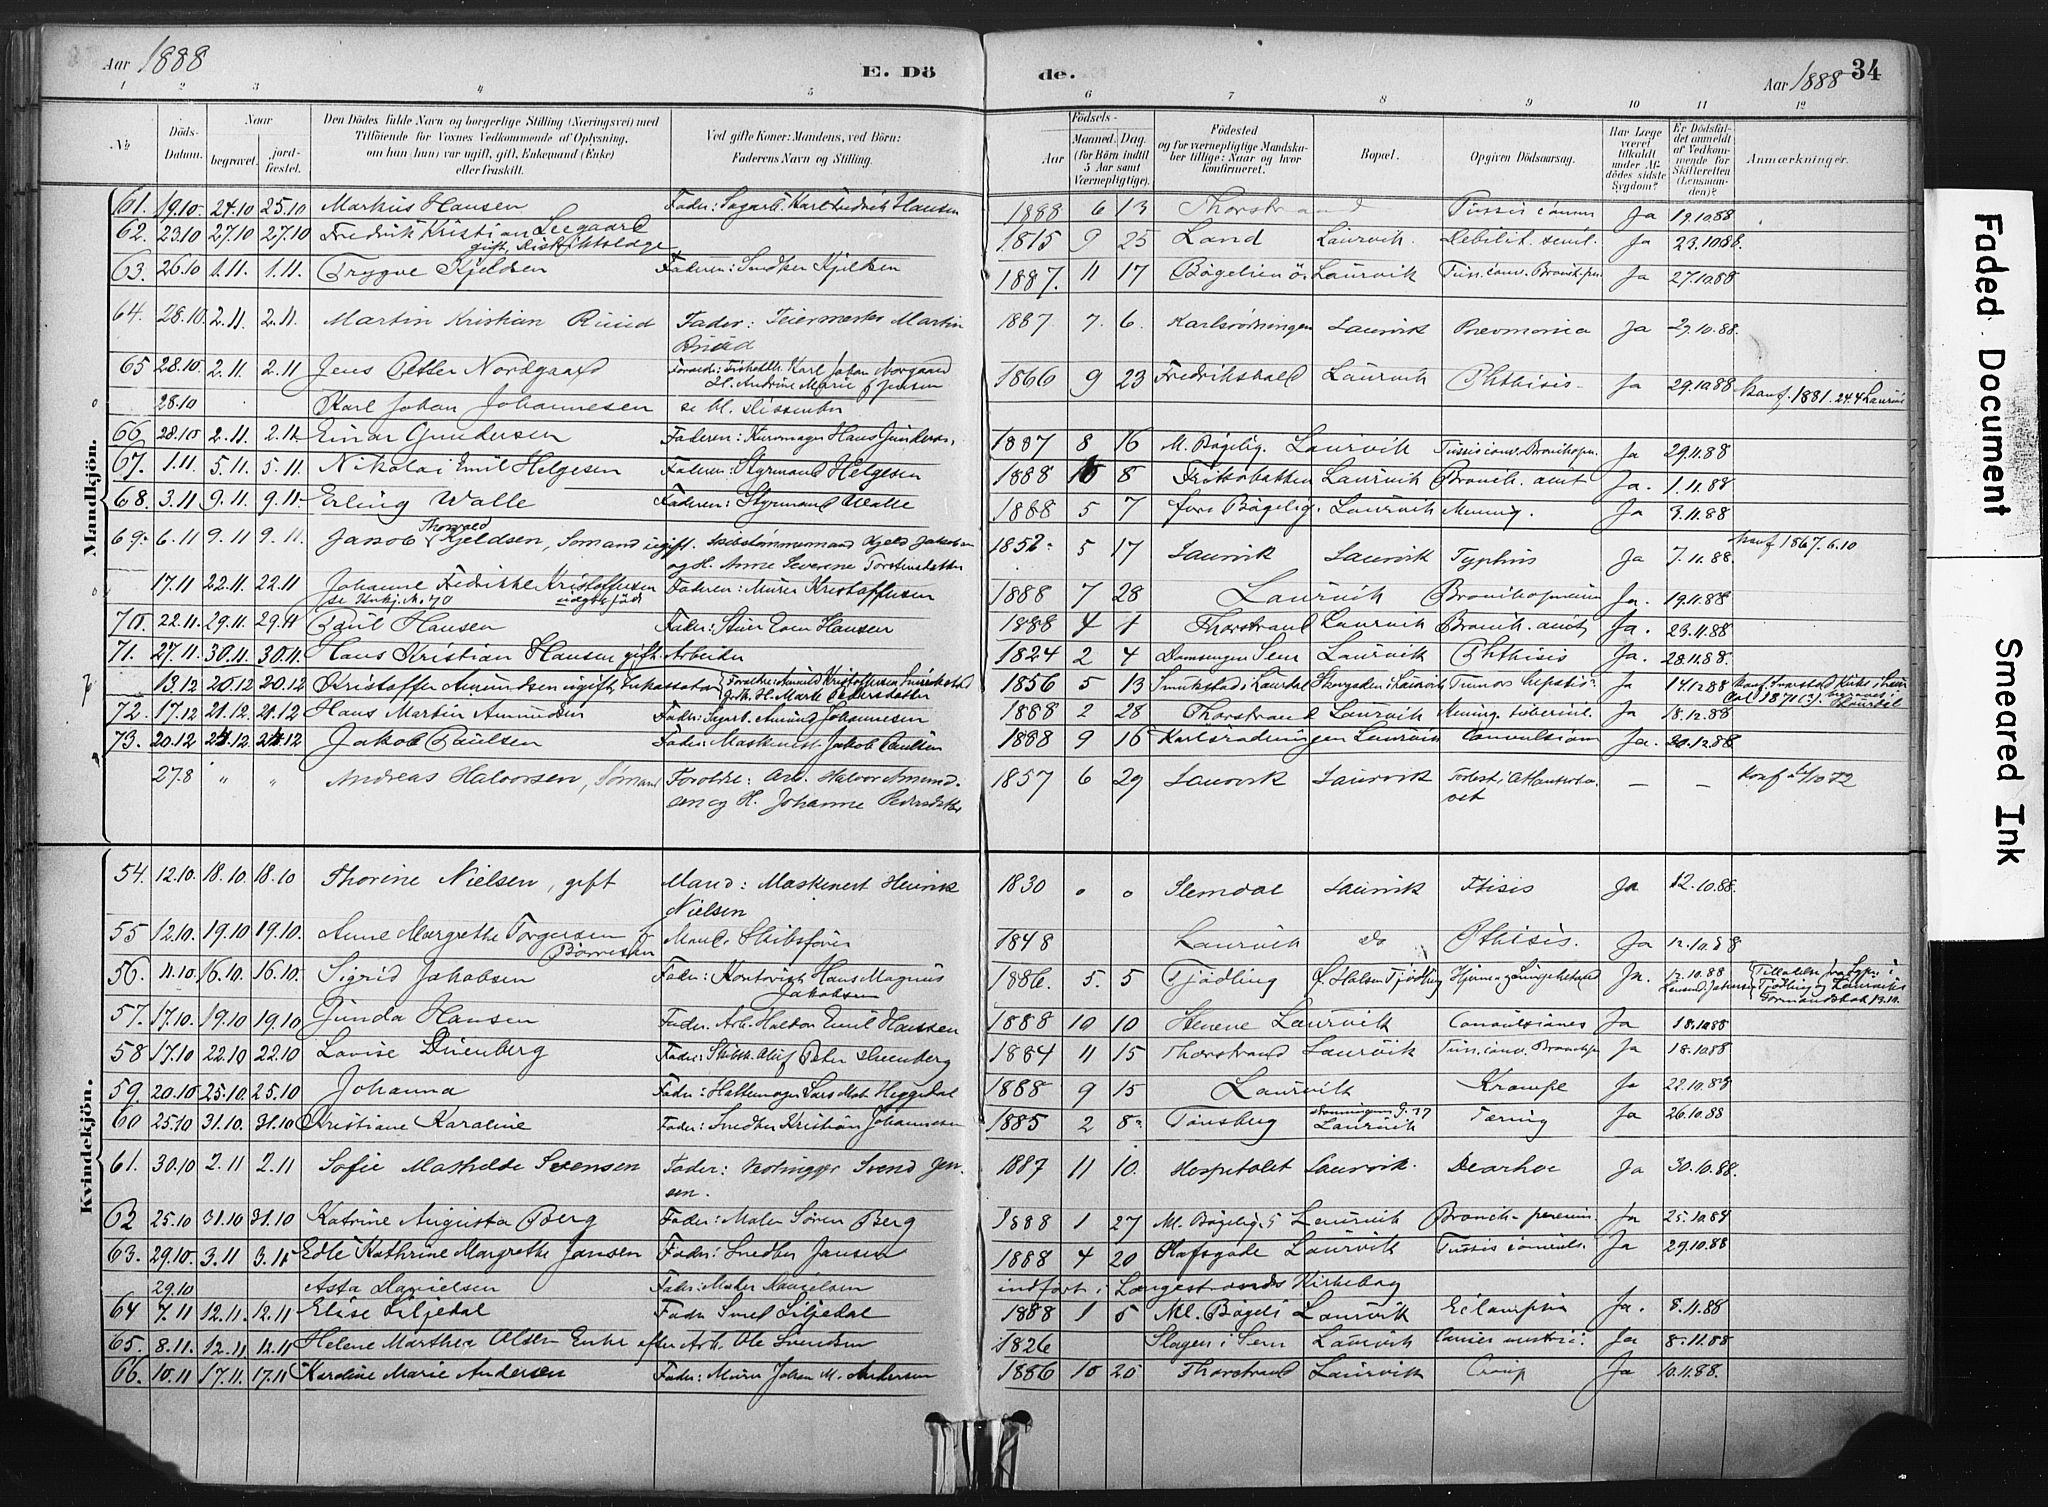 Aar 1888
E. Dö
de.
Aar 1888
34
1 2 3 4 5 6 7 8 9 10 11 12
№
Döds-
Datum.
Naar
begravet.
jord-
fæstet.
Den Dödes fulde Navn og borgerlige Stilling (Næringsvei) med
Tilföiende for Voxnes Vedkommende af Oplysning,
om han (hun) var ugift, gift, Enkemand (Enke)
eller fraskilt.
Ved gifte Koner: Mandens, ved Börn:
Faderens Navn og Stilling.
Födsels-
Aar
Maaned.
Dag.
(for Börn indtil
5 Aar samt
Værnepligtige).
Födested
og for værnepligtige Mandska-
ber tillige: Naar og hvor
konfirmeret.
Bopæl.
Opgiven Dödsaarsag.
Har Læge
været
tilkaldt
under Af-
dödes sidste
Sygdom?
Er Dödsfal-
det anmeldt
af Vedkom-
mende for
Skifteretten
(Lensman-
den)?
Anmærkninger.
Mandkjön.
61. 19.10. 24.10 25.10 Markus Hansen Fader: Sagarb. Karl Fredrik Hansen 1888 6 13 Thorstrand Tussis conv. Ja 19.10.88
62. 23.10 27.10 27.10 Fredrik Kristian Seegaard 1815 9 25 Land Laurvik. Debilit. senil. Ja 23.10.88.
gift, Distriktslæge
63. 26.10 1.11. 1.11. Trygve Kjeldsen Faderen: Snedker Kjeldsen 1887. 11 17 Bøgelien Laurvik Tuss. conv. Bronch.pn. Ja 27.10.88
64. 28.10. 2.11. 2.11. Martin Kristian Ruud Fader: Feiermester Martin 1887 7. 6. Karlsrödningen Laurvik Pnevmonia Ja 29.10.88.
Ruud
65 28.10. 2.11. 2.11. Jens Petter Nordgaard Karl Johan Norgaard 1866 9 23 Fredrikshald Laurvik Phthisis. Ja 29.10.88 Konf. 1881. 24.4 Laurvik
H. Andrine Marie Jensen
28.10 Karl Johan Johannesen se bl. Dissenter
66 28.10 2.11. 2.11. Einar Gundersen Faderen: Hans Gunders. 1887 8 16 M. Bøgelig. Laurvik Tussis conv. Bronchopn. Ja 29.11.88
67. 1.11. 5.11. 5.11. Nikolai Emil Helgesen Faderen: Styrmand Helgesen 1888 8 Laurvik Bronch. acut Ja. 1.11.88
68. 3.11 9.11. 9.11. Erling Walle Faderen: Styrmand Walle 1888 5 7 Bøgelig. Laurvik Mening. Ja 3.11.88
69. 6.11 9.11 9.11. Jakob Thorvald Kjeldsen, Sömand ugift. Kjeld Jakobsen 1852 5 17 Laurvik Laurvik Typhus Ja 7.11.88 Konf 1867. 6.10
og H. Anne Severine Torstensdatter
17.11 22.11 22.11 Johanne Fredrikke Kristoffersen Faderen: Murer Kristoffersen 1888 7 28 Laurvik Bronchopneum Ja. 19.11.88
se Kvkj. № 70 uægte född
70. 22.11. 29.11. 29.11 Paul Hansen Fader: Stuer Even Hansen 1888 4 1 Thorstrand Laurvik Bronch. acut Ja. 23.11.88
71. 27.11. 30.11. 30.11. Hans Kristian Hansen gift. Arbeider 1824 2 4 Sem Laurvik Phthisis Ja. 28.11.88.
13.12 20.12 20.12 Kristoffer Amundsen ugift, Inkassator Forældre: Amund Kristoffersen 1856 5 13 i Laurdal i Laurvik Tumor hepatis Ja 14.12.88
H. Marte Pedersdatter
72. 17.12 21.12 21.12 Hans Martin Amundsen Fader: Sagarb. Amund Johannesen 1888 2 28 Thorstrand Laurvik Mening. tubercul. Ja 18.12.88
73. 20.12 24.12 24.12 Jakob Paulsen Fader: Maskinist Jakob Paulsen 1888 9 16 Karlsrødningen Laurvik Convulsiones Ja. 20.12.88
27.8 " " Andreas Halvorsen, Sömand Forældre: Arb. Halvor Amund- 1857 6 29 Laurvik Laurvik Forlist i Atlanterha- — — Konf 72
sen og H. Johanne Pedersdatter vet
Kvindekjön.
54. 12.10. 18.10. 18.10 Thorine Nielsen, gift Mand: Maskinist Henrik 1830 o o Slemdal Laurvik Ftisis Ja 12.10.88.
Nielsen
55 12.10. 19.10 19.10. Anne Margrethe Torgersen Mand. Skibsfører 1848 Laurvik do Phthisis. Ja 12.10.88
Børresen
56. 11.10. 16.10. 16.10. Sigrid Jakobsen Fader: Hans Magnus 1886. 5. 5 Tjødling Ø. Halsen Tjødling Ja. 12.10.88
Jakobsen
57. 17.10. 19.10 19.10 Gunda Hansen Fader. Arb. Emil Hanssen 1888 10 10 Stenene Laurvik Convulsiones Ja 18.10.88
58 17.10 22.10 22.10 Lovise Duenberg Fader: Oluf Peter Duenberg 1884 11 15 Thorstrand Laurvik Tuss. conv. Bronchopn Ja 18.10.88
59. 20.10 25.10. 25.10. Johanna Fader: Hattemager Lars Mat. Heggedal 1888 9 15 Laurvik Krampe Ja 22.10.88
60 25.10 31.10. 31.10 Kristiane Karoline Fader: Snedker Kristian Johannesen 1885 2 8 Tönsberg Laurvik Tæring Ja 26.10.88
61. 30.10 2.11 2.11 Sofie Mathilde Svensen Fader: Svend Jen- 1887 11 10. Hospitalet Laurvik. Diarhoe Ja 30.10.88.
sen.
62 25.10 31.10 31.10 Katrine Augusta Berg Fader: Maler Søren Berg 1888 1 27 M. Bøgelig. 5 Laurvik Bronch-pneum. Ja 25.10.88
63. 29.10. 3.11 3.11 Edle Kathrine Margrethe Jansen Fader: Snedker Jansen 1888 4 20 Laurvik Tussis convuls. Ja 29.10.88
29.10 Asta Danielsen Fader: Maler Danielsen indfört i Langestrands Kirkebog
64 7.11 12.11. 12.11 Elise Liljedal Fader Smed Liljedal 1888 1 5 Ml. Bøgeli Laurvik Eclampsia Ja. 8.11.88
65. 8.11. 12.11 12.11 Helene Marthea Olsen Enke efter Arb. Ole Svendsen 1826 Slagen i Sem Laurvik Cancer ventric: Ja 8.11.88
66. 10.11 17.11. 17.11 Karoline Marie Andersen Fader: Murer Johan M. Andersen 1886 10 20 Thorstrand Laurvik Croup Ja 10.11.88.
Faded Document
Smeared Ink